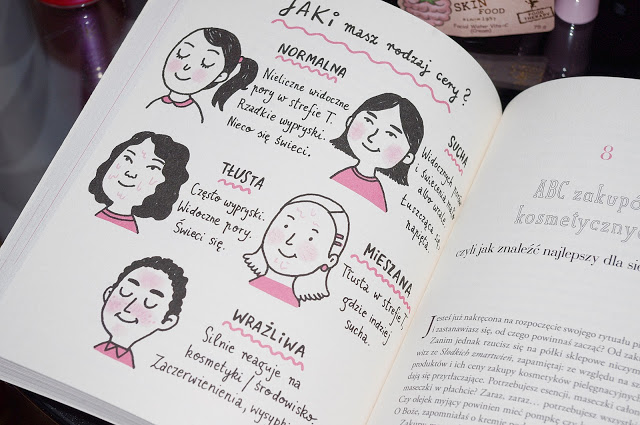 JAKi masz rodzaj cery?
NORMALNA
Nieliczne widoczne
pory w strefie T.
Rzadkie wypryski.
Nieco się świeci.
SUCHA
Widocznych
i świecenia
albo wcale.
Łuszcząca się,
napięta.
TŁUSTA
Często wypryski.
Widoczne pory.
Świeci się.
MIESZANA
Tłusta w strefie T
gdzie indziej
sucha.
WRAŻLIWA
Silnie reaguje na
kosmetyki/środowisko.
Zaczerwienienia,
SKIN
FOOD
8
ABC zakupó
kosmetycznyc
czyli jak znaleźć najlepszy dla sie
Jesteś już nakręcona na rozpoczęcie swojego rytuału pi
i zastanawiasz się, od czego powinnaś zacząć? Od zaku
Zanim jednak rzucisz się na półki sklepowe niczym
wit ze Słodkich zmartwień, zapamiętaj: ze względu na
produktów i ich ceny zakupy kosmetyków pielęgnacyjny
dają się przytłaczające. Potrzebujesz esencji, maseczki cało
maseczki w płachcie? Zaraz, zaraz... potrzebujesz wszystk
Czy olejek myjący powinien mieć pompkę czy
O Boże, zapomniałaś o kremie po